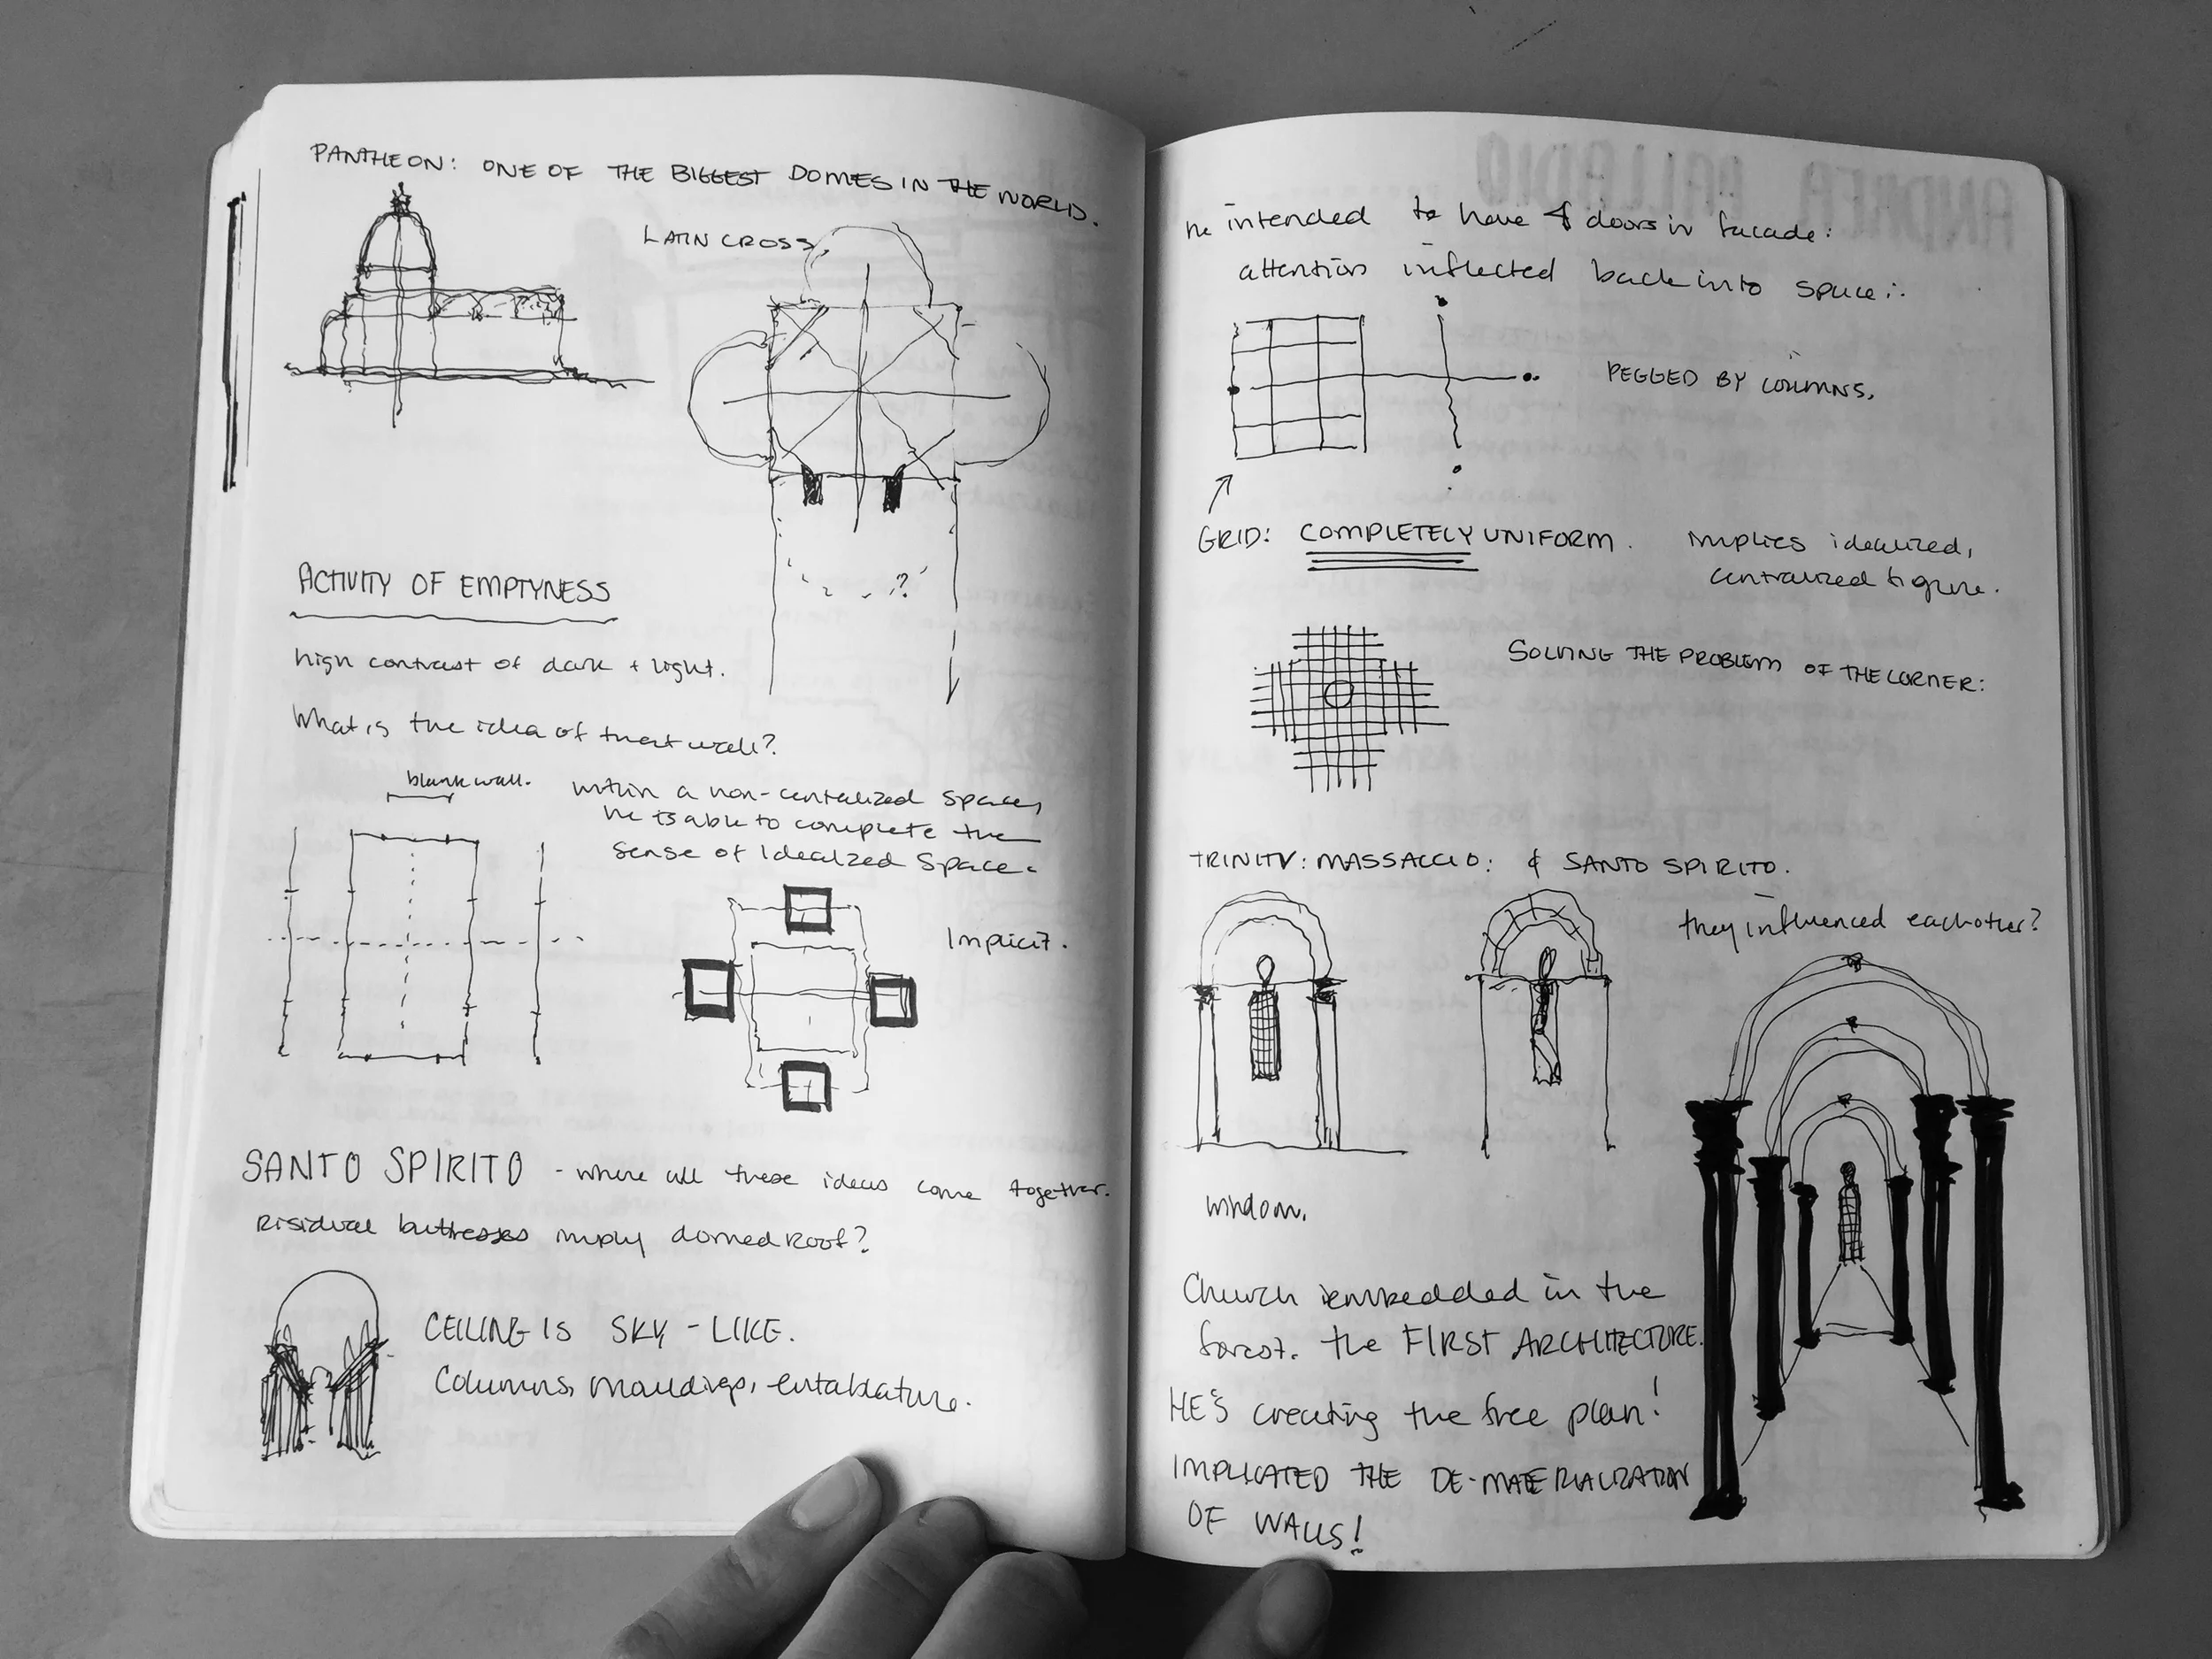 PANTHEON: ONE OF THE BIGGEST DOMES IN THE WORLD.
LATIN CROSS.
?
ACTIVITY OF EMPTYNESS
high contrast of dark + light.
What is the idea of that wall?
blank wall.
within a non-centralized space,
he is able to complete the
sense of Idealized Space.
Implicit.
SANTO SPIRITO - where all these ideas come together.
Residual buttresses imply domed roof?
CEILING IS SKY-LIKE.
Columns, mouldings, entablature.
he intended to have 4 doors in facade:
attention inflected back into space:.
PEGGED BY COLUMNS.
GRID: COMPLETELY UNIFORM. implies idealized,
centralized figure.
SOLVING THE PROBLEM OF THE CORNER:
TRINITY: MASSACCIO: & SANTO SPIRITO.
they influenced each other?
window.
Church embedded in the
forest. the FIRST ARCHITECTURE.
HE'S creating the free plan!
IMPLICATED THE DE-MATERIALIZATION
OF WALLS!